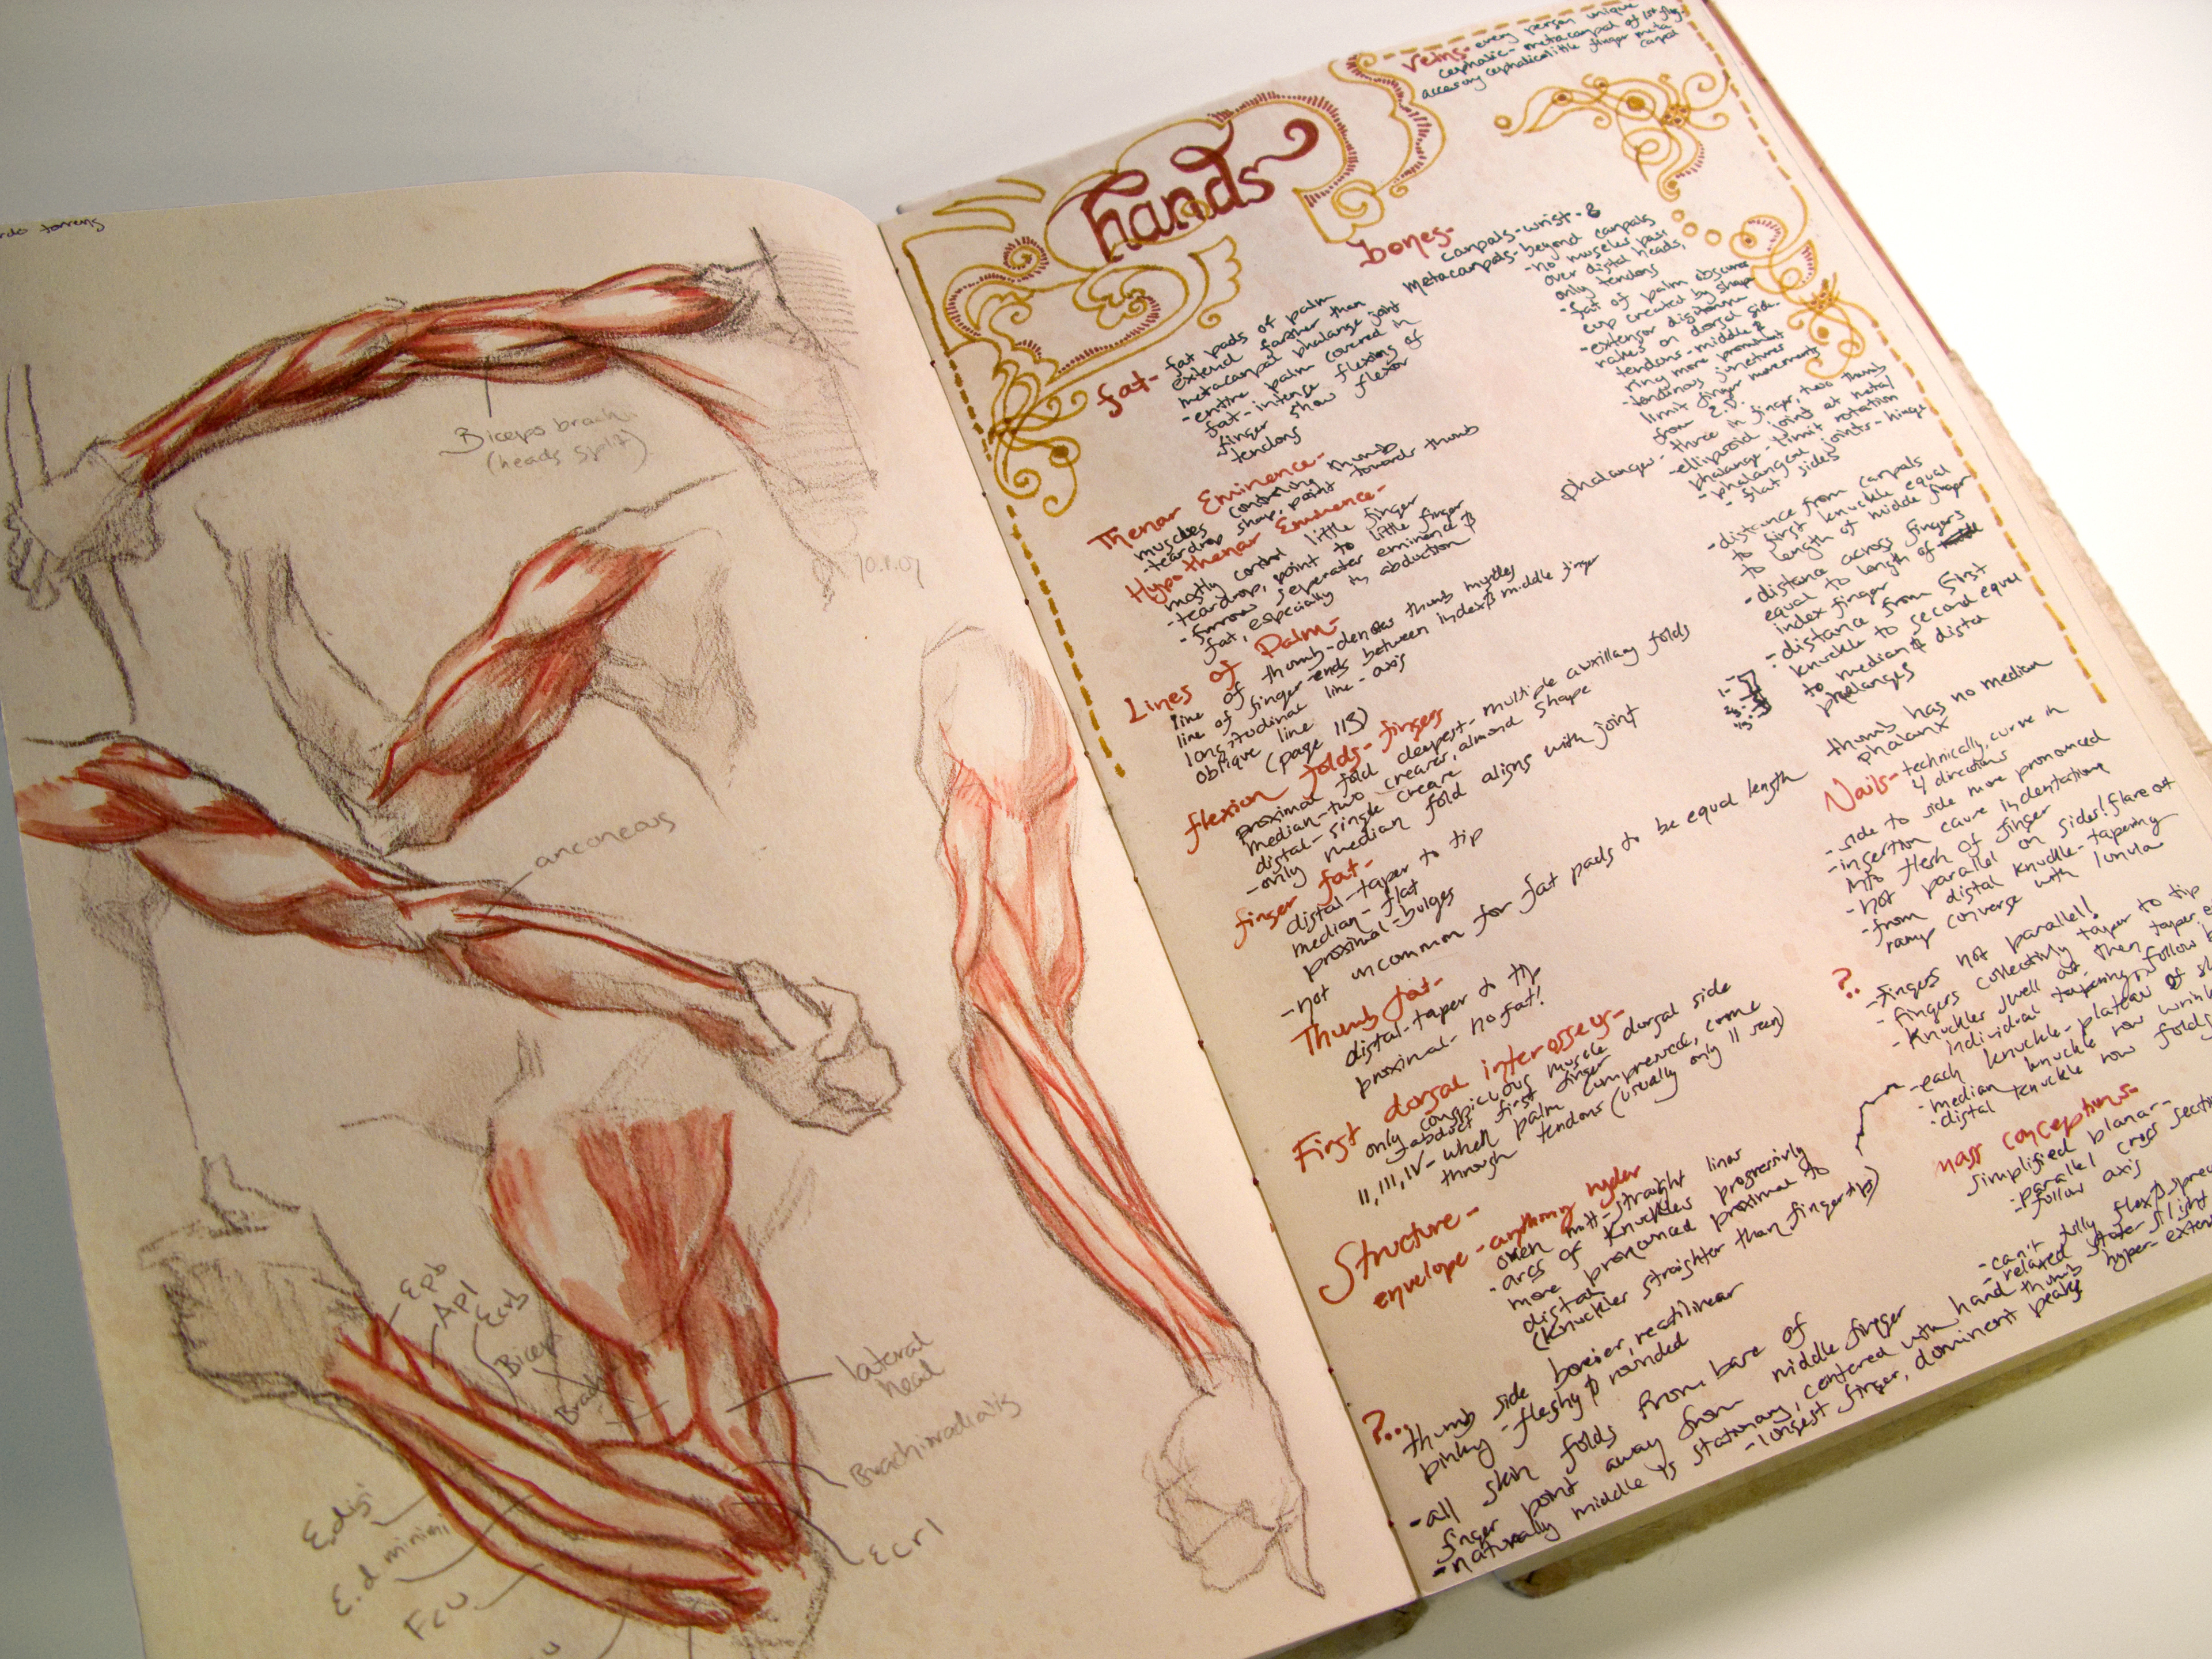 Biceps brachii
(heads split)
anconeous
Epb
Apl
Ecrb
Bicep
Brach
lateral
head
Brachioradialis
Ecrl
E.digi
E.d minimi
Fcu
hands
veins- every person unique
cephalic- metacarpal of 1st
accessory cephalic little finger meta
carpal
fat- fat pads of palm
extend farther than
metacarpal phalange joint
-entire palm covered in
fat- intense flexions of
finger show flexor
tendons
Thenar Eminence-
muscles controling thumb
-teardrop shap, point towards thumb
Hypothenar Eminence-
mostly control little finger
-teardrop, point to little finger
-furrow seperates eminence &
fat, especially in abduction
Lines of Palm-
line of thumb-denotes thumb muscles
line of finger-ends between index & middle finger
longitudinal line-axis
oblique line
(page 115)
flexion folds-fingers
proximal fold deepest-multiple auxillary folds
median-two creases, almond shape
distal-single crease
-only median fold aligns with joint
finger fat-
distal-taper to tip
median-flat
proximal-bulges
-not uncommon for fat pads to be equal length
Thumb fat-
distal-taper to tip
proximal-no fat!
First dorsal interosseus-
only conspicuous muscle dorsal side
-abduct first finger
II, III, IV-when palm compressed, come
through tendons (usually only II seen)
Structure-
envelope-anything under
mitt-straight lines
-arcs of knuckles progressivly
more pronounced proximal to
distal
(knuckles straighter than fingertips)
?...
thumb side bonier, rectilinear
pinky-fleshy & rounded
-all skin folds from base of
finger point away from middle finger
-naturally middle is stationary, centered with hand
-longest finger, dominent peaks
bones-
carpals-wrist-8
metacarpals-beyond carpals
-no muscles pass
over distal heads,
only tendons
-fat of palm obscures
cup created by shape
-extensor digitorum
rakes on dorsal side.
tendons-middle &
ring more prominent
-tendinous junctures
limit finger movements
from E.D.
phalanges-three in finger, two thumb
-ellipsoid joint at meta/
phalange-limit rotation
-phalangeal joints-hinge
-flat sides
-distance from carpals
to first knuckle equal
to length of middle finger
-distance across fingers
equal to length of
index finger
-distance from first
knuckle to second equal
to median & distal
phalanges
thumb has no median
phalanx
Nails-technically, curve in
4 directions
-side to side more pronounced
-insertion cause indentations
into flesh of finger
-not parallel on sides! flare out
-from distal knuckle-tapering
ramp converse with lunula
?.
-fingers not parallel!
-fingers collectivly taper to tip
-knuckles swell out, then taper
individual tapering, follow
-each knuckle-plateau of
-median knuckle row
-distal knuckle row folds
mass conceptions-
simplified planar-
-parallel cross
-follow axis
-can't fully flex & spread
-relaxed state slight
thumb-hyper-exten